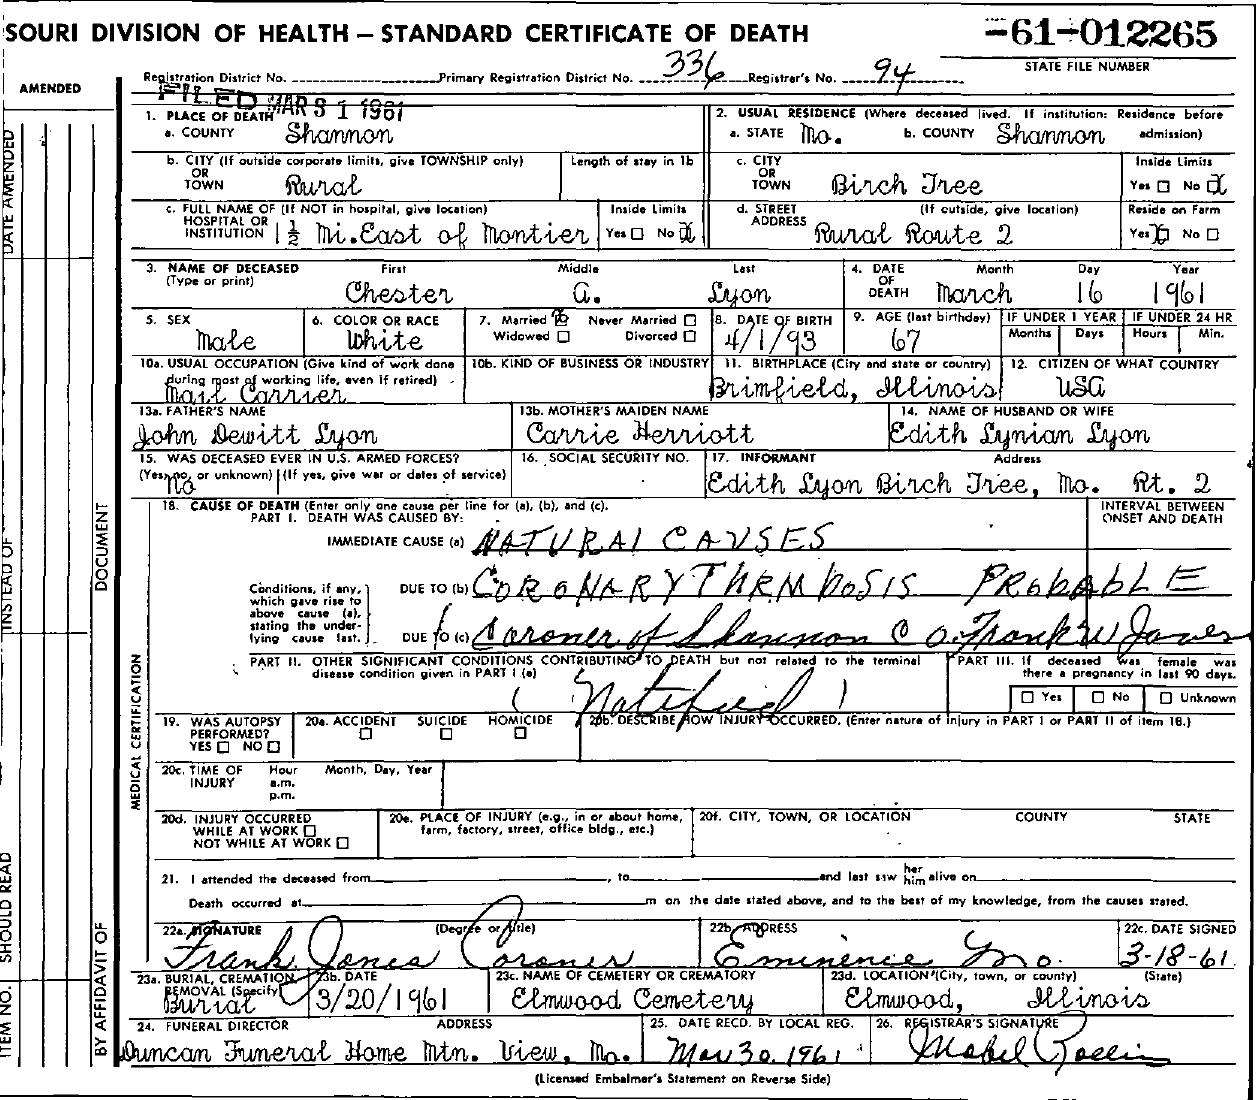 SOURI DIVISION OF HEALTH — STANDARD CERTIFICATE OF DEATH
-61-012265
STATE FILE NUMBER
Registration District No. Primary Registration District No. 336 Registrar's No. 94
AMENDED
FILED MAR 31 1961
1. PLACE OF DEATH
a. COUNTY Shannon
2. USUAL RESIDENCE (Where deceased lived. If institution: Residence before admission)
a. STATE Mo. b. COUNTY Shannon
b. CITY (If outside corporate limits, give TOWNSHIP only)
OR
TOWN Rural
Length of stay in 1b
c. CITY
OR
TOWN Birch Tree
Inside Limits
Yes ☐ No ☒
c. FULL NAME OF (If NOT in hospital, give location)
HOSPITAL OR
INSTITUTION 1 1/2 Mi. East of Montier
Inside Limits
Yes ☐ No ☒
d. STREET (If outside, give location)
ADDRESS Rural Route 2
Reside on Farm
Yes ☒ No ☐
3. NAME OF DECEASED
(Type or print)
First Middle Last
Chester A. Lyon
4. DATE OF DEATH
Month Day Year
March 16 1961
5. SEX
Male
6. COLOR OR RACE
White
7. Married ☒ Never Married ☐
Widowed ☐ Divorced ☐
8. DATE OF BIRTH
4/1/93
9. AGE (last birthday)
67
IF UNDER 1 YEAR
Months Days
IF UNDER 24 HR
Hours Min.
10a. USUAL OCCUPATION (Give kind of work done
during most of working life, even if retired)
Mail Carrier
10b. KIND OF BUSINESS OR INDUSTRY
11. BIRTHPLACE (City and state or country)
Brimfield, Illinois
12. CITIZEN OF WHAT COUNTRY
USA
13a. FATHER'S NAME
John Dewitt Lyon
13b. MOTHER'S MAIDEN NAME
Carrie Herriott
14. NAME OF HUSBAND OR WIFE
Edith Lynian Lyon
15. WAS DECEASED EVER IN U.S. ARMED FORCES?
(Yes, no, or unknown) (If yes, give war or dates of service)
no
16. SOCIAL SECURITY NO.
17. INFORMANT Address
Edith Lyon Birch Tree, Mo. Rt. 2
18. CAUSE OF DEATH (Enter only one cause per line for (a), (b), and (c).
PART I. DEATH WAS CAUSED BY:
INTERVAL BETWEEN
ONSET AND DEATH
IMMEDIATE CAUSE (a) NATURAL CAUSES
Conditions, if any,
which gave rise to
above cause (a),
stating the under-
lying cause last.
DUE TO (b) CORONARY THRMBOSIS PROBABLE
DUE TO (c) (Coroner of Shannon Co. Frank W Jones
PART II. OTHER SIGNIFICANT CONDITIONS CONTRIBUTING TO DEATH but not related to the terminal
disease condition given in PART I (a)
( Notified )
PART III. If deceased was female was
there a pregnancy in last 90 days.
☐ Yes ☐ No ☐ Unknown
19. WAS AUTOPSY
PERFORMED?
YES ☐ NO ☐
20a. ACCIDENT SUICIDE HOMICIDE
☐ ☐ ☐
20b. DESCRIBE HOW INJURY OCCURRED. (Enter nature of injury in PART I or PART II of item 18.)
20c. TIME OF INJURY
Hour Month, Day, Year
a.m.
p.m.
20d. INJURY OCCURRED
WHILE AT WORK ☐
NOT WHILE AT WORK ☐
20e. PLACE OF INJURY (e.g., in or about home,
farm, factory, street, office bldg., etc.)
20f. CITY, TOWN, OR LOCATION COUNTY STATE
21. I attended the deceased from , to and last saw her him alive on
Death occurred at m on the date stated above, and to the best of my knowledge, from the causes stated.
22a. SIGNATURE (Degree or title)
Frank Jones Coroner
22b. ADDRESS
Eminence Mo.
22c. DATE SIGNED
3-18-61
23a. BURIAL, CREMATION,
REMOVAL (Specify)
Burial
23b. DATE
3/20/1961
23c. NAME OF CEMETERY OR CREMATORY
Elmwood Cemetery
23d. LOCATION (City, town, or county) (State)
Elmwood, Illinois
24. FUNERAL DIRECTOR ADDRESS
Duncan Funeral Home Mtn. View, Mo.
25. DATE RECD. BY LOCAL REG.
Mar 30, 1961
26. REGISTRAR'S SIGNATURE
Mabel Rollins
(Licensed Embalmer's Statement on Reverse Side)
DATE AMENDED
INSTEAD OF
SHOULD READ
ITEM NO.
DOCUMENT
BY AFFIDAVIT OF
MEDICAL CERTIFICATION